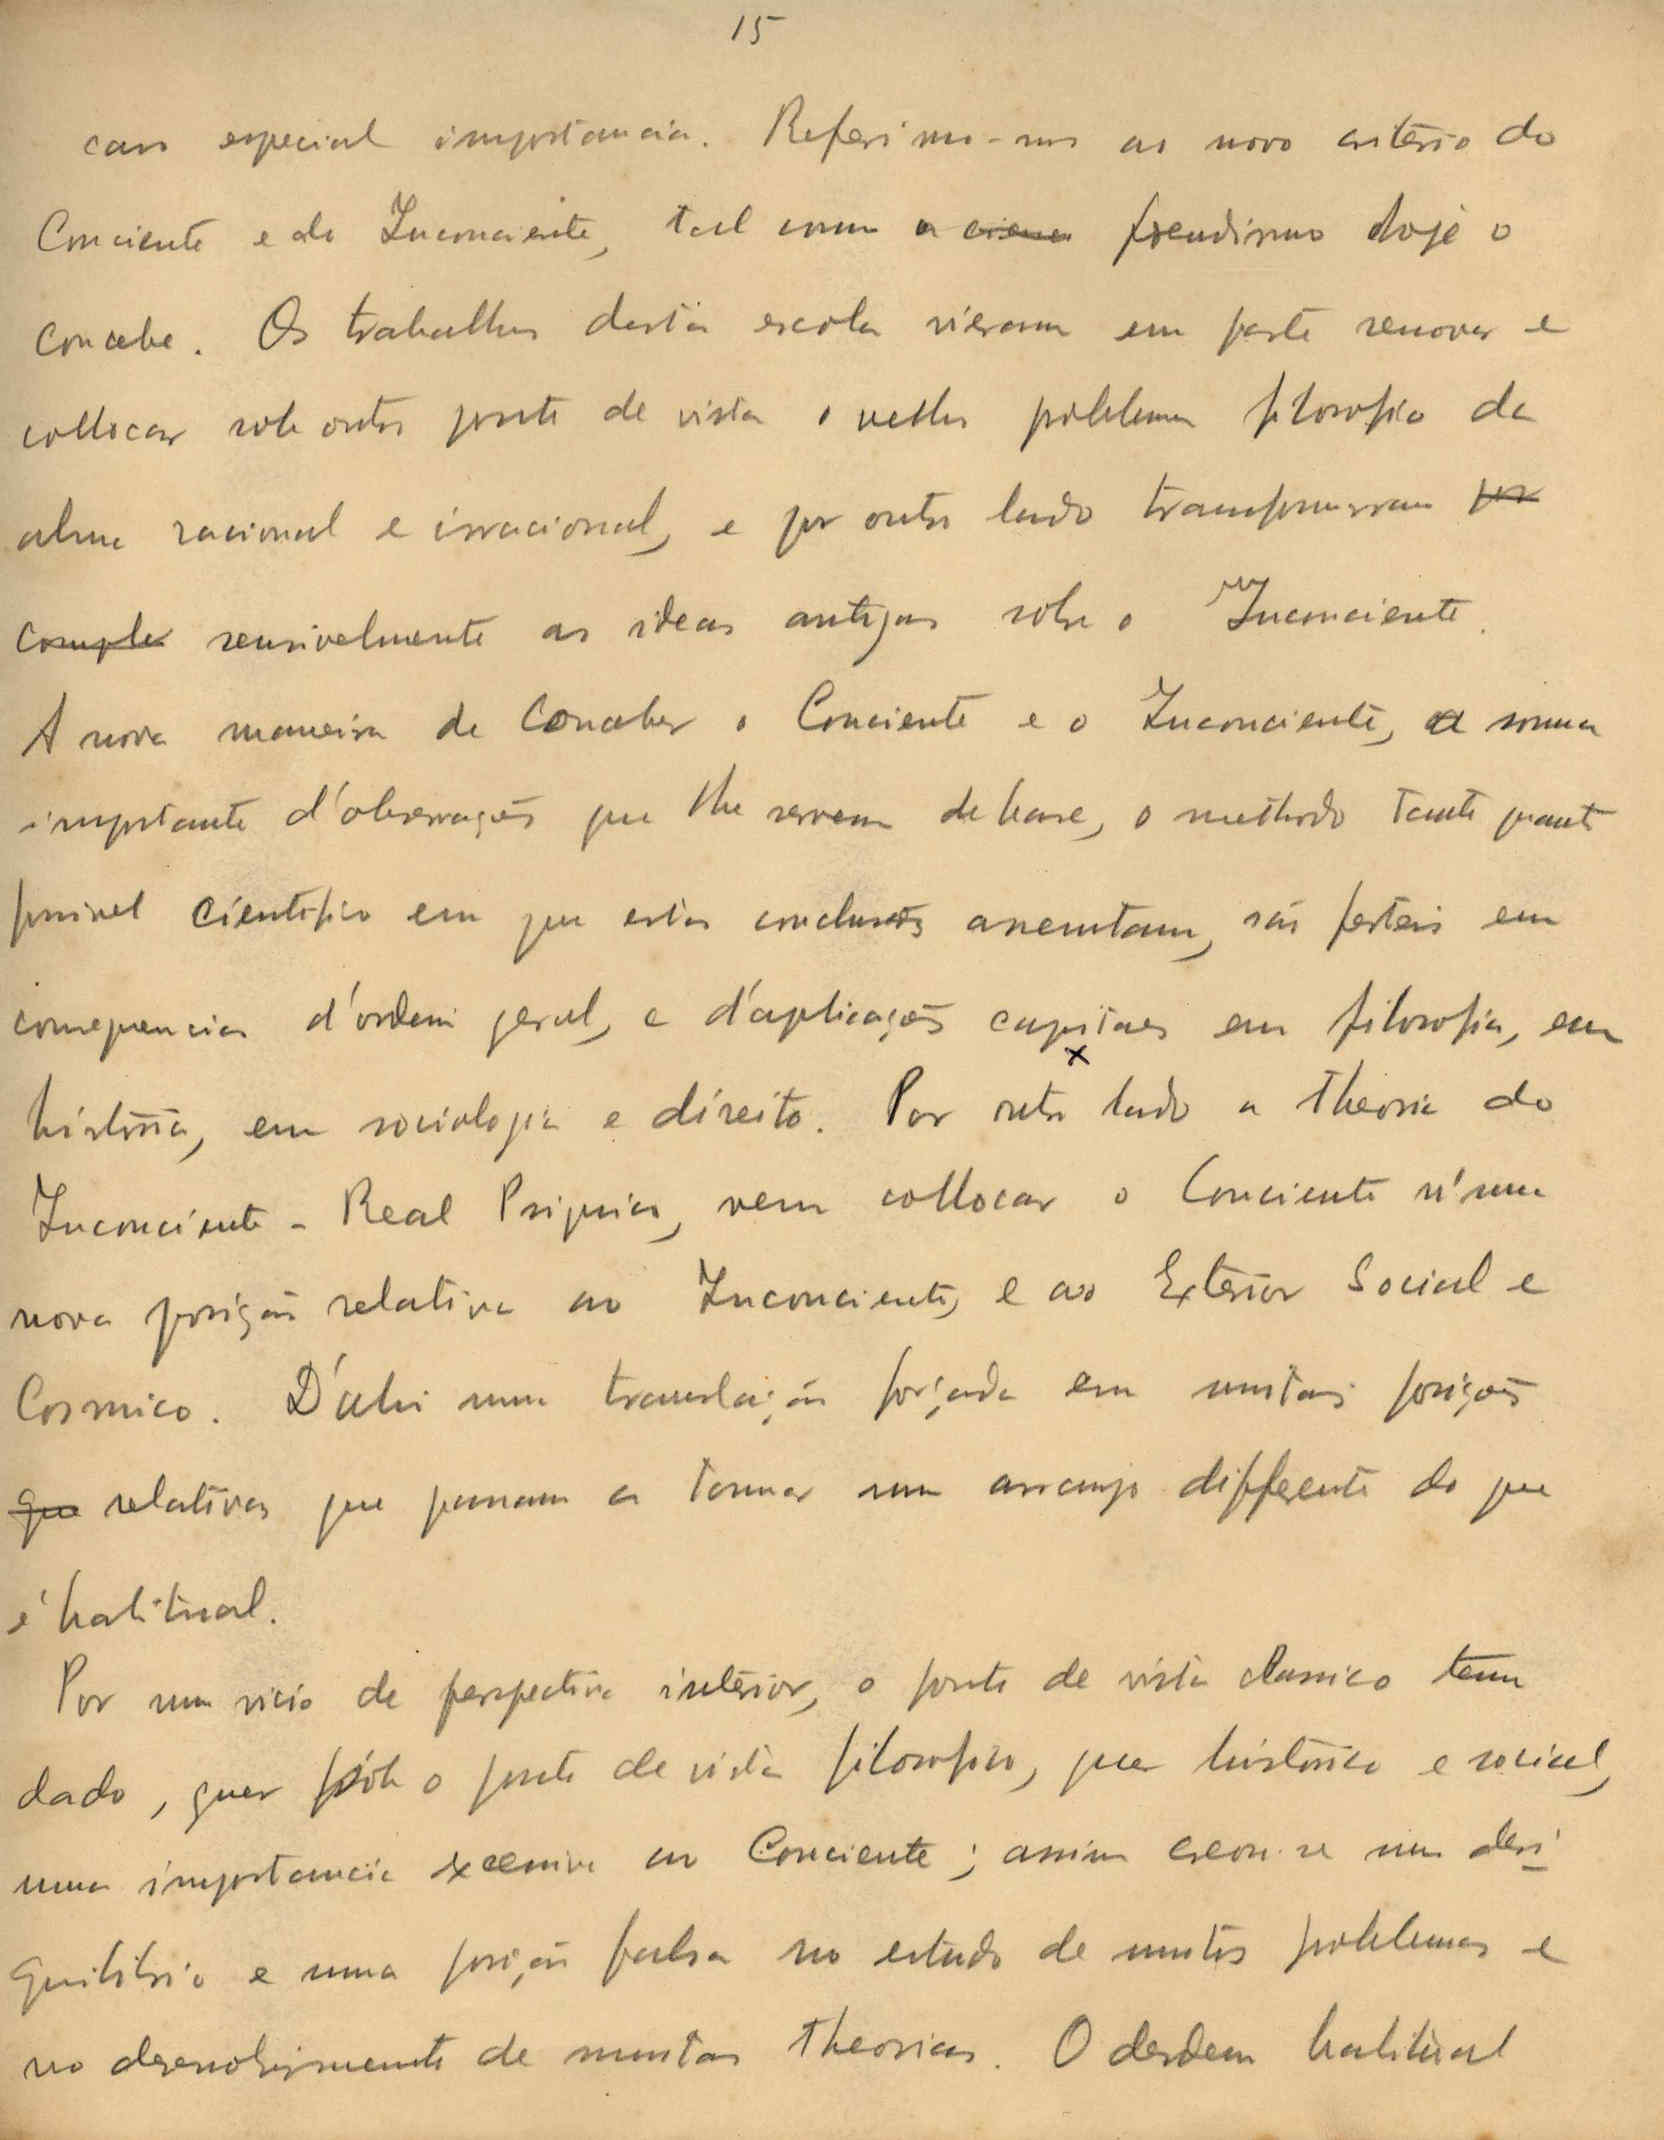 15
caso especial importancia. Referimo-nos ao novo criterio do
Conciente e do Inconciente, tal como a freudismo hoje o
concebe. Os trabalhos desta escola vieram em parte renovar e
collocar sob outro ponto de vista o velho problema filosofico da
alma racional e irracional, e por outro lado transformaram por
comple sensivelmente as ideas antigas sobre o Inconciente.
A nova maneira de conceber o Conciente e o Inconciente, a somma
importante d'observações que lhe servem de base, o methodo tanto quanto
possivel cientifico em que estas conclusões assentam, são ferteis em
consequencias d'ordem geral, e d'aplicações capitaes em filosofia, em
historia, em sociologia e direito. Por outro lado a theoria do
Inconciente - Real Psiquico, vem collocar o Conciente n'uma
nova posição relativa ao Inconciente, e ao Exterior Social e
Cosmico. D'ahi uma translação forçada em muitas posições
que relativas que passam a tomar um arranjo differente do que
é habitual.
Por um vicio de perspectiva interior, o ponto de vista classico tem
dado, quer sob o ponto de vista filosofico, quer historico e social,
uma importancia excessiva ao Conciente; assim creou-se um dese
quilibrio e uma posição falsa no estudo de muitos problemas e
no desenvolvimento de muitas theorias. O desdem habitual